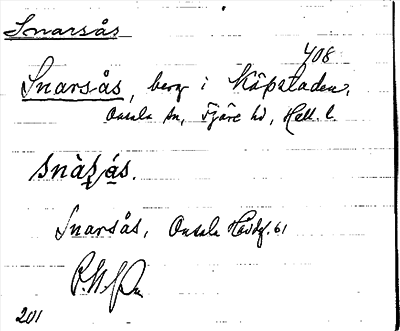 Snarsås
408
Snarsås, berg i Köpstaden,
Onsala sn, Fjäre hd, Hall. l.
snàʂás.
Snarsås, Onsala Hdbg. 61
201